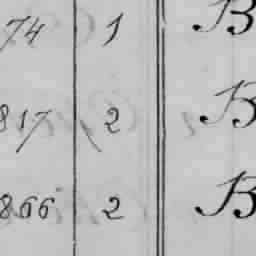 74 1 B
817 2 B
866 2 B